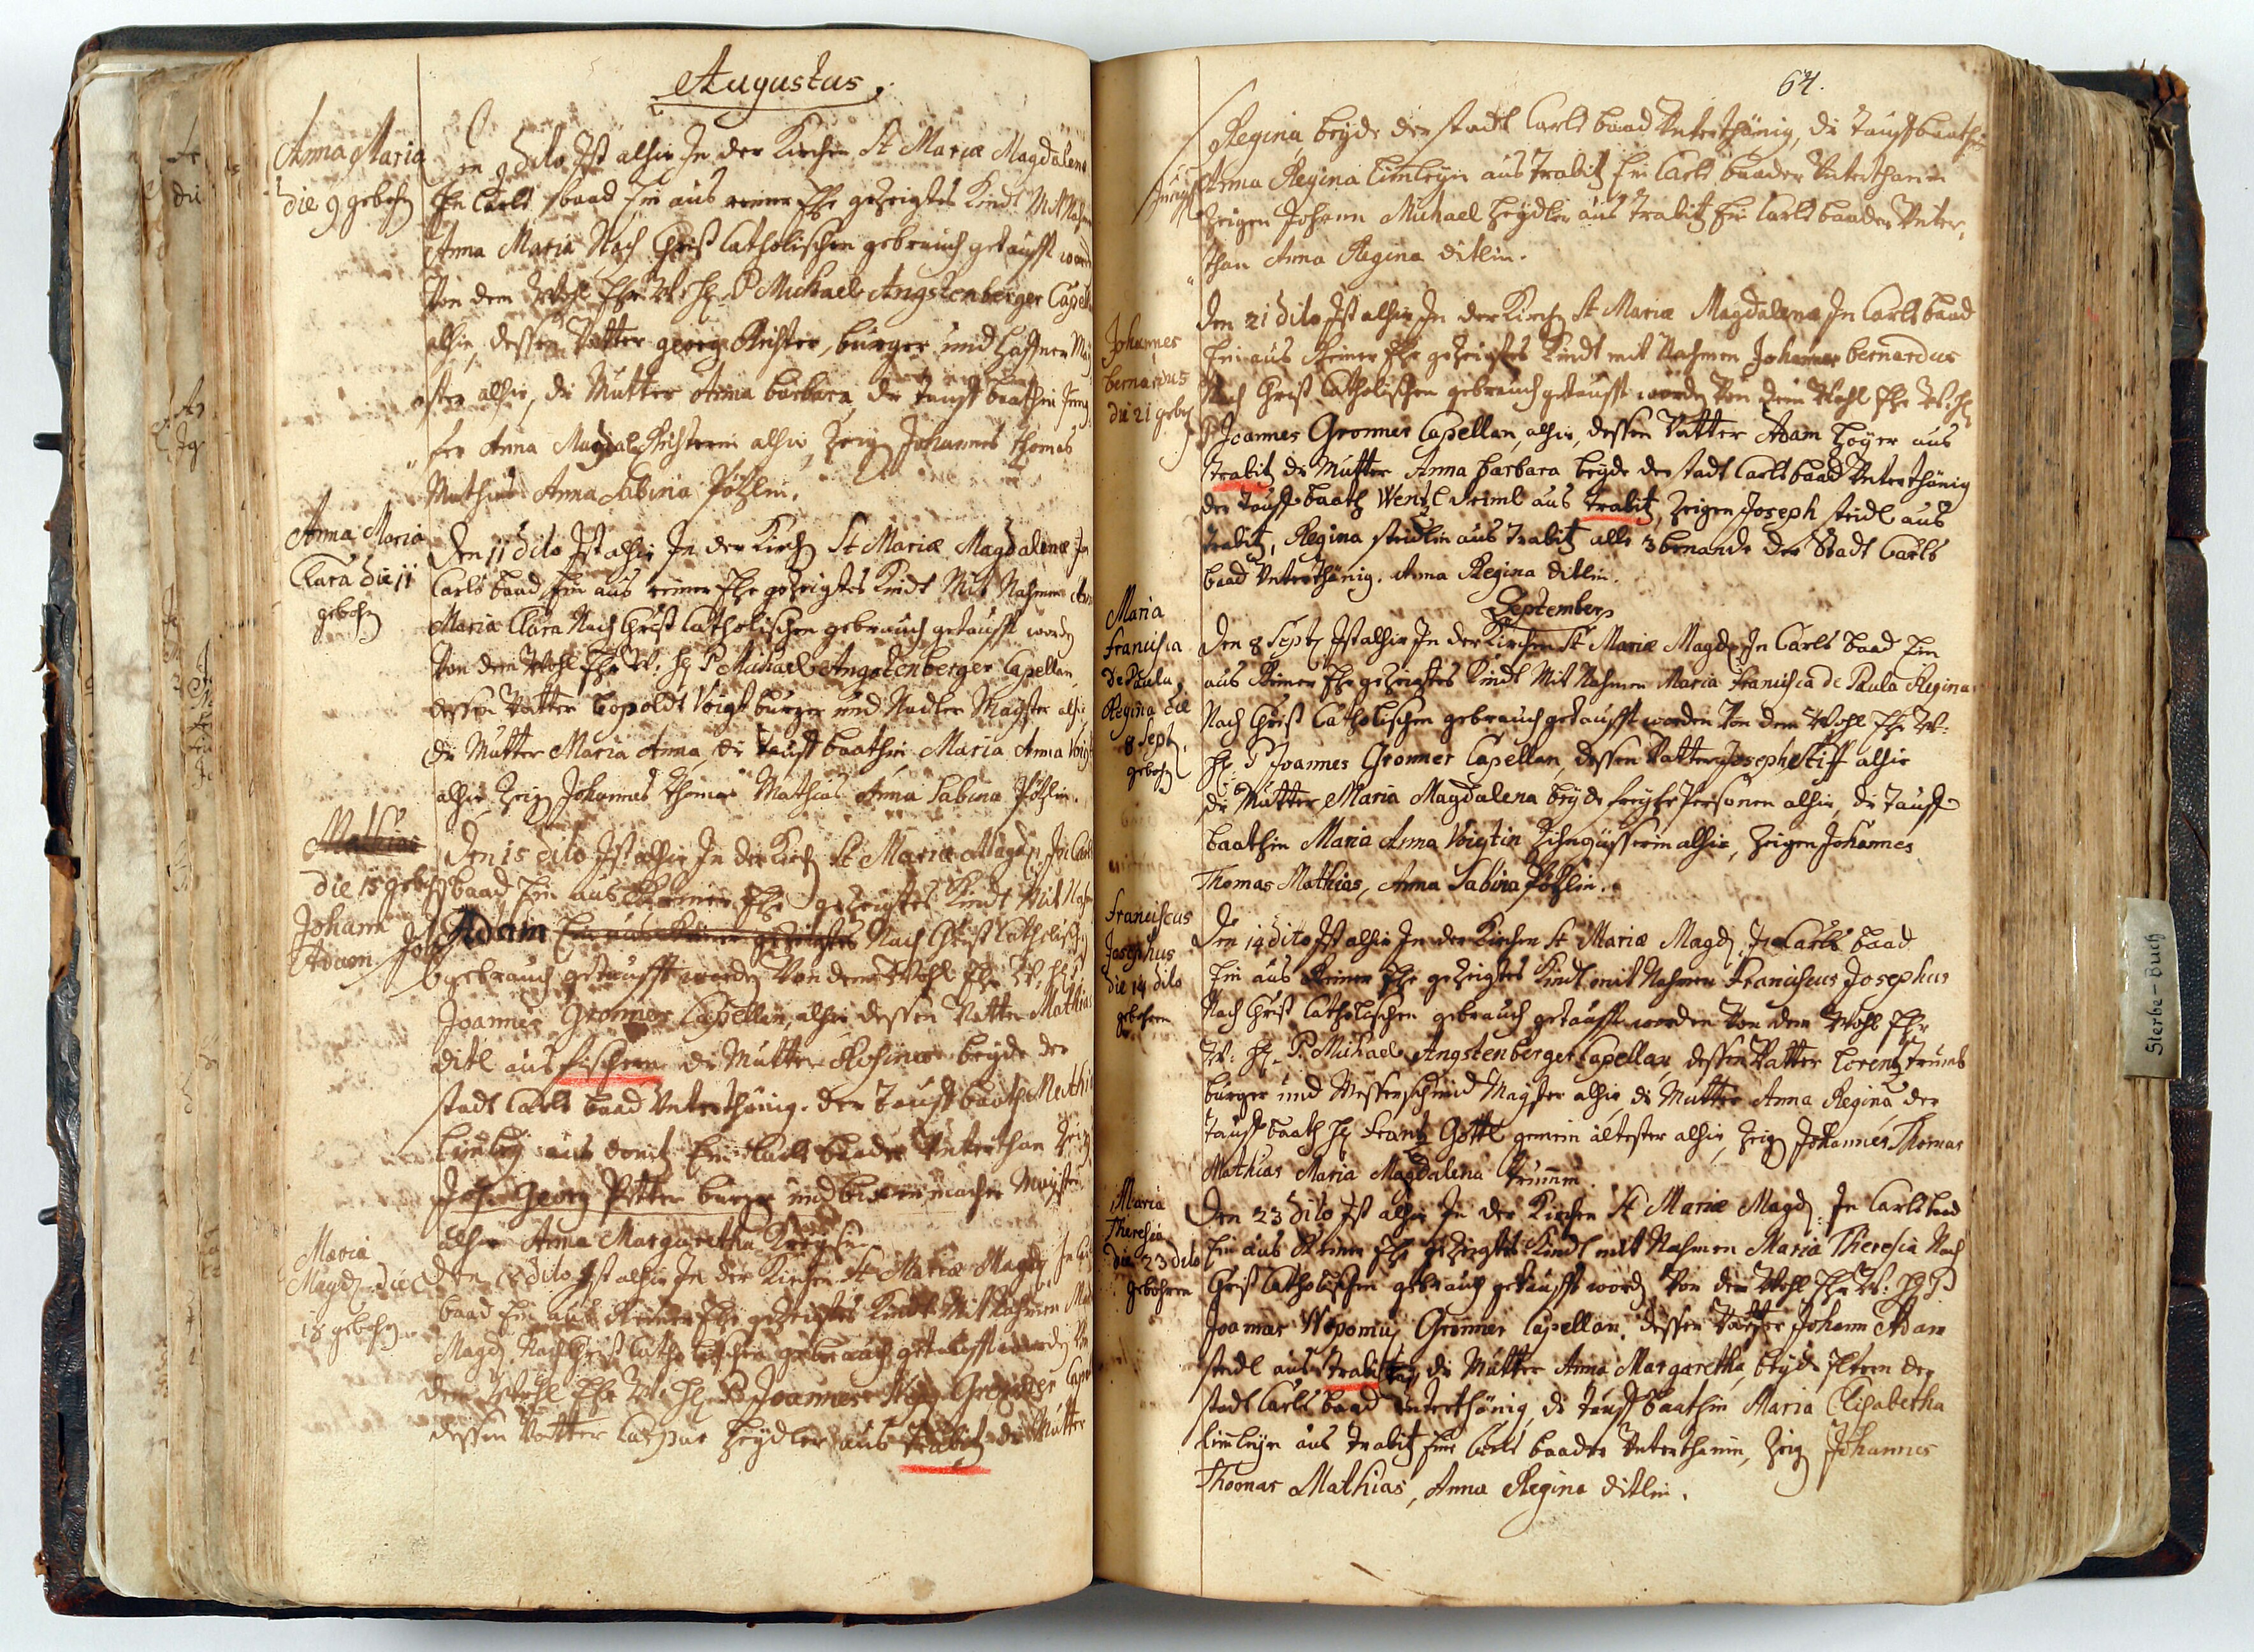 Augustus.
Anna Maria
die 9 gebohrn
Den 9 dito Ist alhir In der Kirchen St Mariæ Magdalena
In Carls baad Ein aus reiner Ehe gezeigtes Kindt Mit Nahmen
Anna Maria Nach Christ Catholischen gebrauch getaufft word
Von dem Wohl Ehr W: H: P Michael Angstenberger Capell
alhir, dessen Vatter georg Richter, burger und Haffner May
ster alhir, die Mutter Anna barbara, die tauff baathin Jung
fer Anna Magdal Richterin alhir, Zeig Johannes Thomas
Mathias Anna Sabina Pötzlin.
Anna Maria
Clara die 11
gebohrn
Den 11 dito Ist alhir In der Kirch St Mariæ Magdalenæ In
Carls baad Ein aus reiner Ehe gezeigtes Kindt Mit Nahmen Ann
Maria Clara Nach Christ Catholischen gebrauch getaufft word
Von dem Wohl Ehr W: H: P Michael Angstenberger Capellan
dessen Vatter Leopoldt Voigt burger und Nadler Mayster alhir
die Mutter Maria Anna, die tauff baathin Maria Anna Voigt
alhir, Zeig Johannes Thomas Mathias Anna Sabina Pötzlin.
Mathias
die 15 gebohrn
Johann
Adam
Den 15 dito Ist alhir In der Kirch St Mariæ Magd In Carls
baad Ein aus Reiner Ehe gezeigtes Kindt Mit Nahm
Joh Adam Ein aus Reiner gezeigtes Nach Christ Catholisch
gebrauch getaufft word Von dem Wohl Ehr W: H:
Joannes Gronner Capellan, alhir dessen Vatter Mathias
ditl aus fischern die Mutter Rosina beyde der
stadt Carls baad Unterthänig. der tauff baath
aus Ein Carls baader Unterthan Zeig
Joh: Georg Pitter burger und macher Mayster
alhir Anna Margaretha
Maria
Magd die
18 gebohrn
Den 18 dito Ist alhir In der Kirchen St Mariæ Magd In Carls
baad Ein aus Reiner Ehe gezeigtes Kindt Mit Nahmen Mar
Magd Nach Christ Catholischen gebrauch getaufft word Von
dem Wohl Ehr W: H: P Joannes Nep: Gronner Capel
dessen Vatter Caspar Heydler aus trabitz die Mutter
64.
Regina beyde der stadt Carls baad Unterthänig, die tauffbaathin
Jungf Anna Regina Limleyn aus trabitz Ein Carls baader Unterthanin
Zeigen Johann Michael Heydler aus trabitz Ein Carls baader Unter,
than Anna Regina ditlin.
Johannes
bernardus
die 21 gebohrn
Den 21 dito Ist alhir In der Kirch St Mariæ Magdalena In Carls baad
Ein aus Reiner Ehe gezeigtes Kindt mit Nahmen Johannes bernardus
Nach Christ Catholischen gebrauch getaufft word Von dem Wohl Ehr W: H:
P Joannes Gronner Capellan, alhir, dessen Vatter Adam Hoyer aus
trabitz die Mutter Anna barbara beyde der stadt Carls baad Unterthänig
der tauff baath Wentzl Seiml aus trabitz, Zeigen Joseph steidl aus
trabitz, Regina steidlin aus trabitz alle 3 benande der Stadt Carls
baad Unterthänig. Anna Regina ditlin.
September
Maria
Francisca
De Paula
Regina die
8 Sept
gebohrn
Den 8 Sept Ist alhir In der Kirchen St Mariæ Magd In Carls baad Ein
aus Reiner Ehe gezeigtes Kindt Mit Nahmen Maria Francisca de Paula Regina
Nach Christ Catholischen gebrauch getaufft worden Von dem Wohl Ehr W:
H: P Joannes Gronner Capellan, dessen Vatter Joseph Stiff alhir
die Mutter Maria Magdalena beyde Personen alhir, die tauff
baathin Maria Anna Voigtin Zihngüsserin alhir, Zeigen Johannes
Thomas Mathias, Anna Sabina Pötzlin.
Franciscus
Josephus
die 14 dito
gebohren
Den 14 dito Ist alhir In der Kirchen St Mariæ Magd In Carls baad
Ein aus Reiner Ehe gezeigtes Kindt mit Nahmen Franciscus Josephus
Nach Christ Catholischen gebrauch getaufft worden Von dem Wohl Ehr
W: H: P. Michael Angstenberger Capellan, dessen Vatter Lorentz
burger und Messerschmid Mayster alhir, die Mutter Anna Regina, der
tauff baath H: Frantz Gottl gemein ältester alhir, Zeig Johannes Thomas
Mathias Maria Magdalena
Maria
Theresia
die 23 dito
gebohren
Den 23 dito Ist alhir In der Kirchen St Mariæ Magd: In Carls baad
Ein aus Reiner Ehe gezeigtes Kindt mit Nahmen Maria Theresia Nach
Christ Catholischen gebrauch getaufft word Von dem Wohl Ehr W: H: P
Joannes Gronner Capellan, dessen Vatter Johann Adam
steidl aus trabitz, die Mutter Anna Margaretha, beyde Eltern der
stadt Carls baad Unterthänig, die tauff baathin Maria Elisabetha
Limleyn aus trabitz Eine Carls baader Unterthanin, Zeig Johannes
Thomas Mathias, Anna Regina ditlin.
Sterbe-Buch